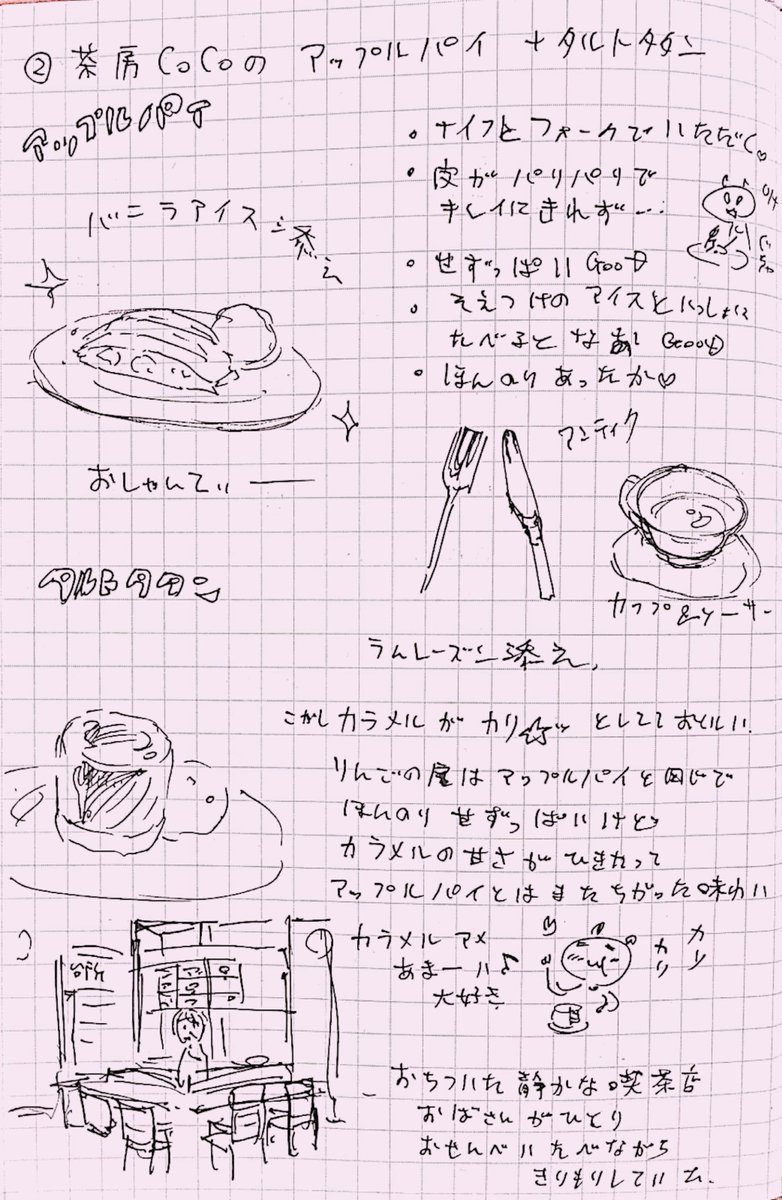 ② 茶房CoCoの アップルパイ + タルトタタン
アップルパイ
バニラアイス添え
おしゃんてぃー
・ナイフとフォークでいただく♡
・皮がパリパリで
キレイにきれず…
・甘ずっぱい Good
・そえつけのアイスといっしょに
たべると なお Good
・ほんのりあったか♡
アンティク
カップ&ソーサー
タルトタタン
らんレーズン添え
こがしカラメルが カリ☆ッ としてておいしい.
りんごの層はアップルパイと同じで
ほんのり甘ずっぱいけど
カラメルの甘さがひきたって
アップルパイとはまたちがった味わい
カラメルアメ
あまーい♪
大好き
カリ
カリ
おちついた静かな喫茶店
おばさんがひとり
おせんべいたべながら
きりもりしていた.